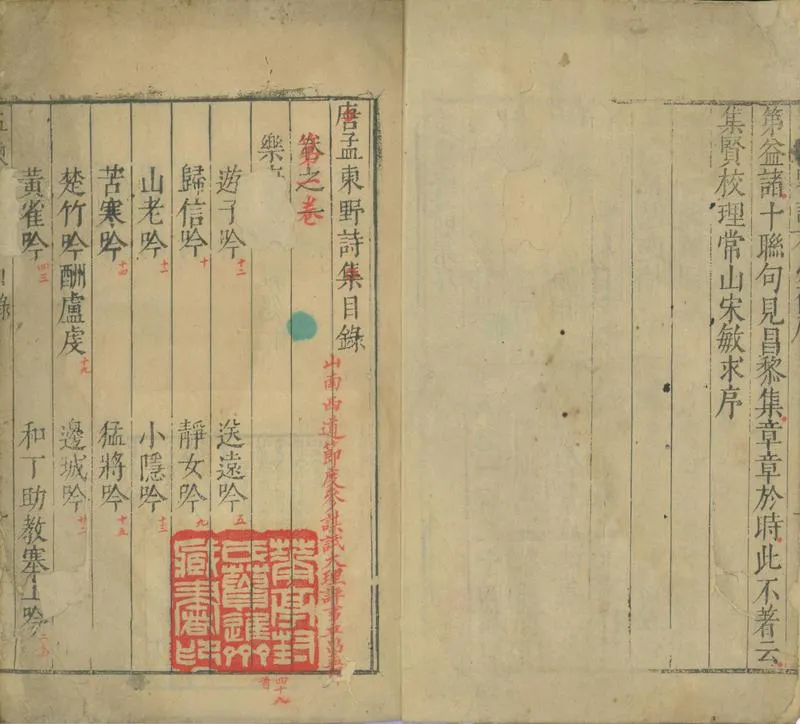 第益諸十聯句見昌黎集章章於時此不著云
集賢校理常山宋敏求序
唐孟東野詩集目錄
山南西道節度參謀試大理評事
卷之
卷
樂
遊子吟十二
送遠吟五
歸信吟十
靜女吟九
山老吟十一
小隱吟十三
苦寒吟十四
猛將吟十五
楚竹吟酬盧虔十九
邊城吟廿二
黃雀吟四三
和丁助教塞上吟
四十九首